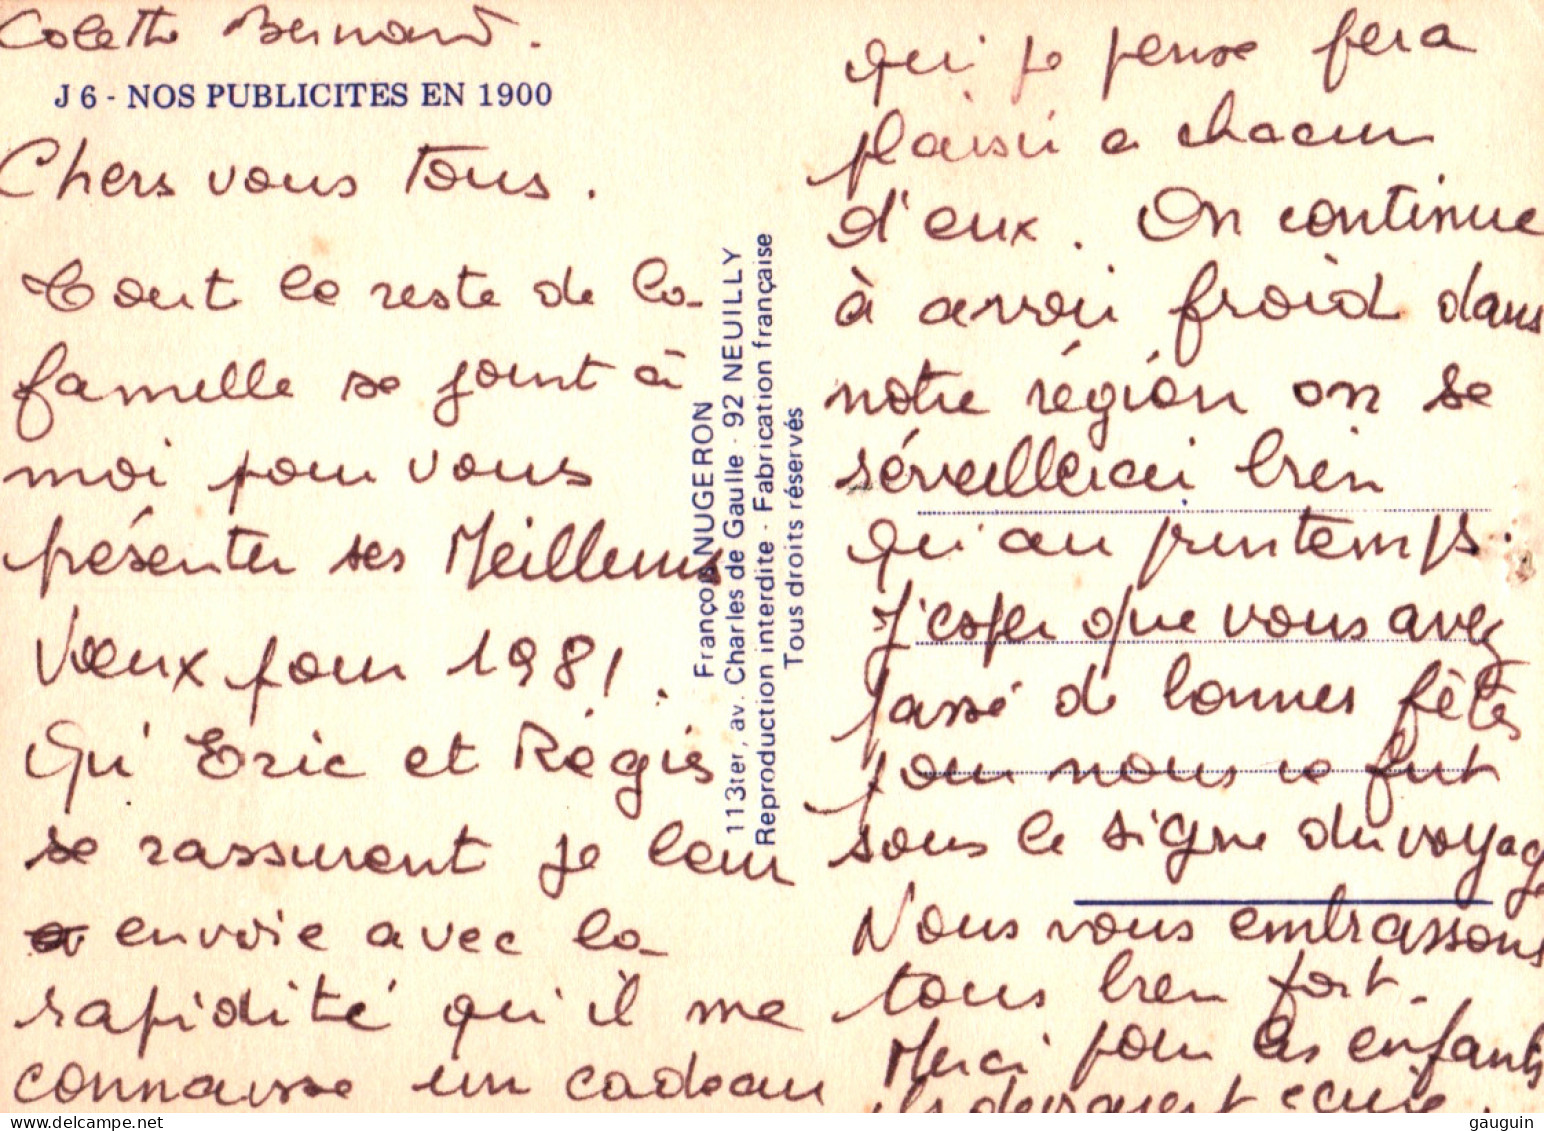 Colette Bernard.
J 6 - NOS PUBLICITES EN 1900
Chers vous tous.
Tout le reste de la
famille se joint à
moi pour vous
présenter ses Meilleurs
Vœux pour 1981.
Qu' Eric et Régis
se rassurent je leur
envoie avec la
rapidité qu'il me
connaisse un cadeau
François NUGERON
113ter, av. Charles de Gaulle - 92 NEUILLY
Reproduction interdite - Fabrication française
Tous droits réservés
qui je pense fera
plaisir a chacun
d'eux. On continue
à avoir froid dans
notre région on se
réveillerai bien
qu'au printemps.
J'esper que vous avez
passé de bonnes fêtes
pour nous ce fut
sous le signe du voyage
Nous vous embrassons
tous bien fort.
Merci pour les enfants
ils devraient ecrire.
gauguin